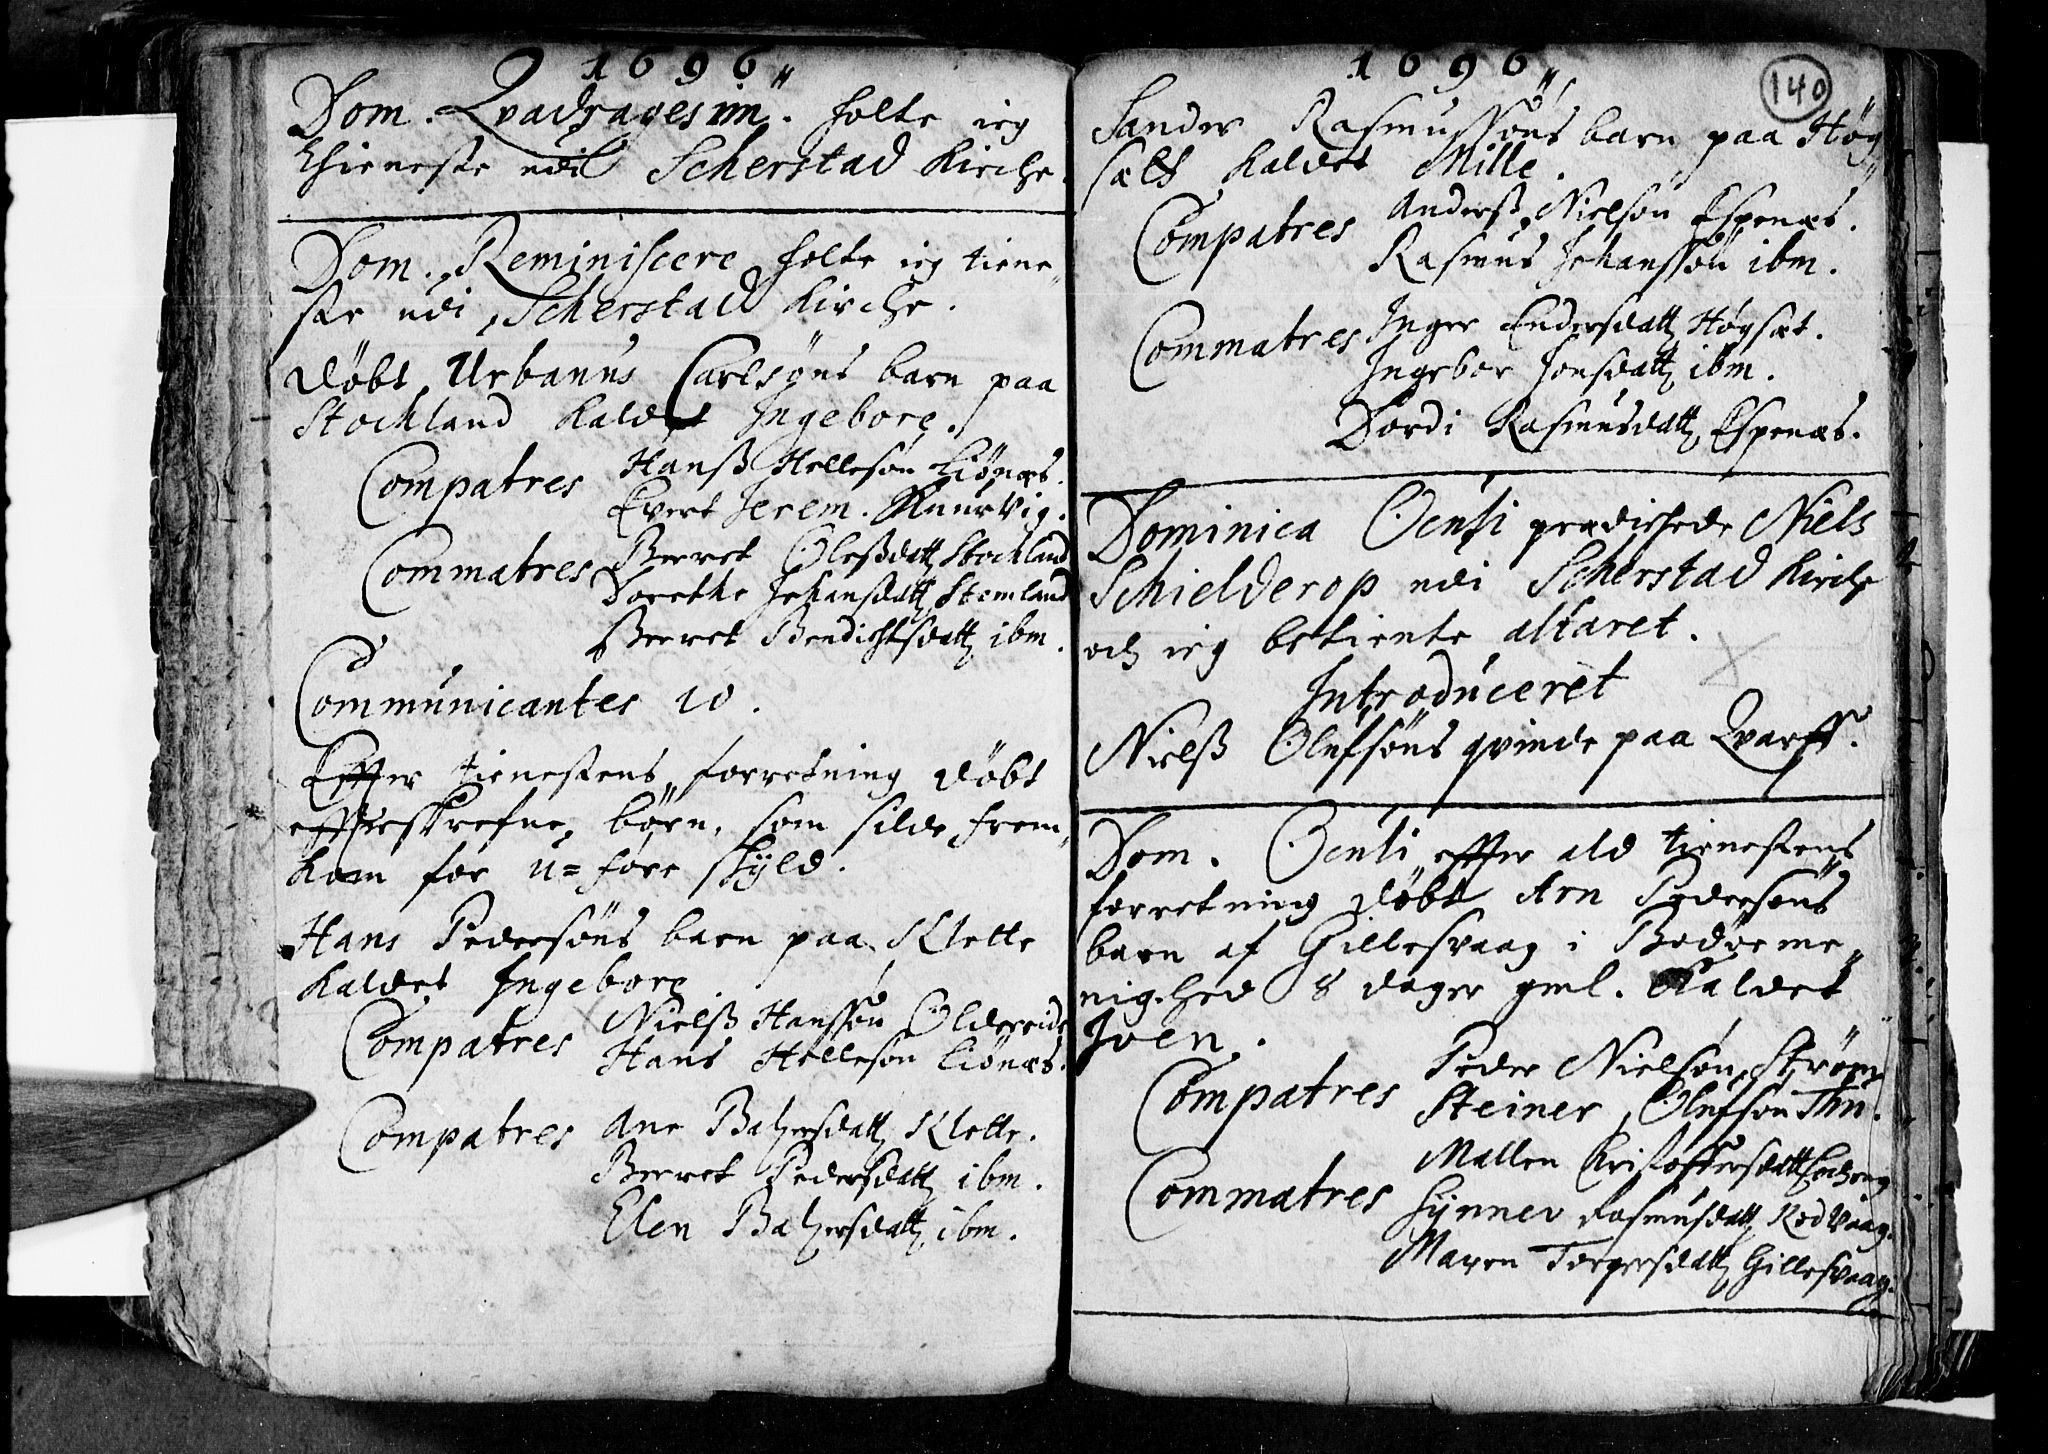 1696
Dom. Qvadragesim. holte ieg
thieneste udi Scherstad Kirche.
Dom. Reminiscere holte ieg tiene
ste udi Scherstad Kirche.
Døbt Urbanus Carlsøns barn paa
Stochland kaldet Ingeborg.
Compatres Hanß Hellesøn Liønæs.
Evert Jerem. Knurvig.
Commatres Berret Oleßdatt Stochland
Dorethe Johansdatt Stemland
Berret Bendichtsdatt ibm.
Communicantes 10.
Effter tienestens forretning døbt
effterskrefne børn, som silde frem,,
kom for u=føre skyld.
Hans Pedersøns barn paa Klette
kaldet Ingeborg
Compatres Nielß Hanssøn Oldereide
Hans Hellesøn Liønæs.
Compatres Ane Baltzersdatt Klette.
Berret Pedersdatt ibm.
Elen Baltzersdatt ibm.
1696
140
Sander Rasmussøns barn paa Høg
sæt kaldet Mille.
Compatres Anderß Nielsøn Espenæs.
Rasmus Johanssøn ibm.
Commatres Inger Endersdatt Høgsæt.
Ingebor Jonsdatt ibm.
Dordi Rasmusdatt Espenæs.
Dominica Oculi prædichede Niels
Schielderop udi Scherstad Kirche
och ieg betiente altaret.
Introduceret
Nielß Olufsøns qvinde paa Qvarff.
Dom. Oculi effter ald tienestens
forretning døbt Arn Pedersøns
barn af Gillesvaag i Bodøe me,,
nighed 8 dager gml. Kaldet
Joen.
Compatres Peder Nielsøn Strøm
Steiner Olufsøn Thu.
Commatres Mallen Christoffersdatt
Synnev Rasmusdatt Rødvaag.
Maren Torgersdatt Gillesvaag.